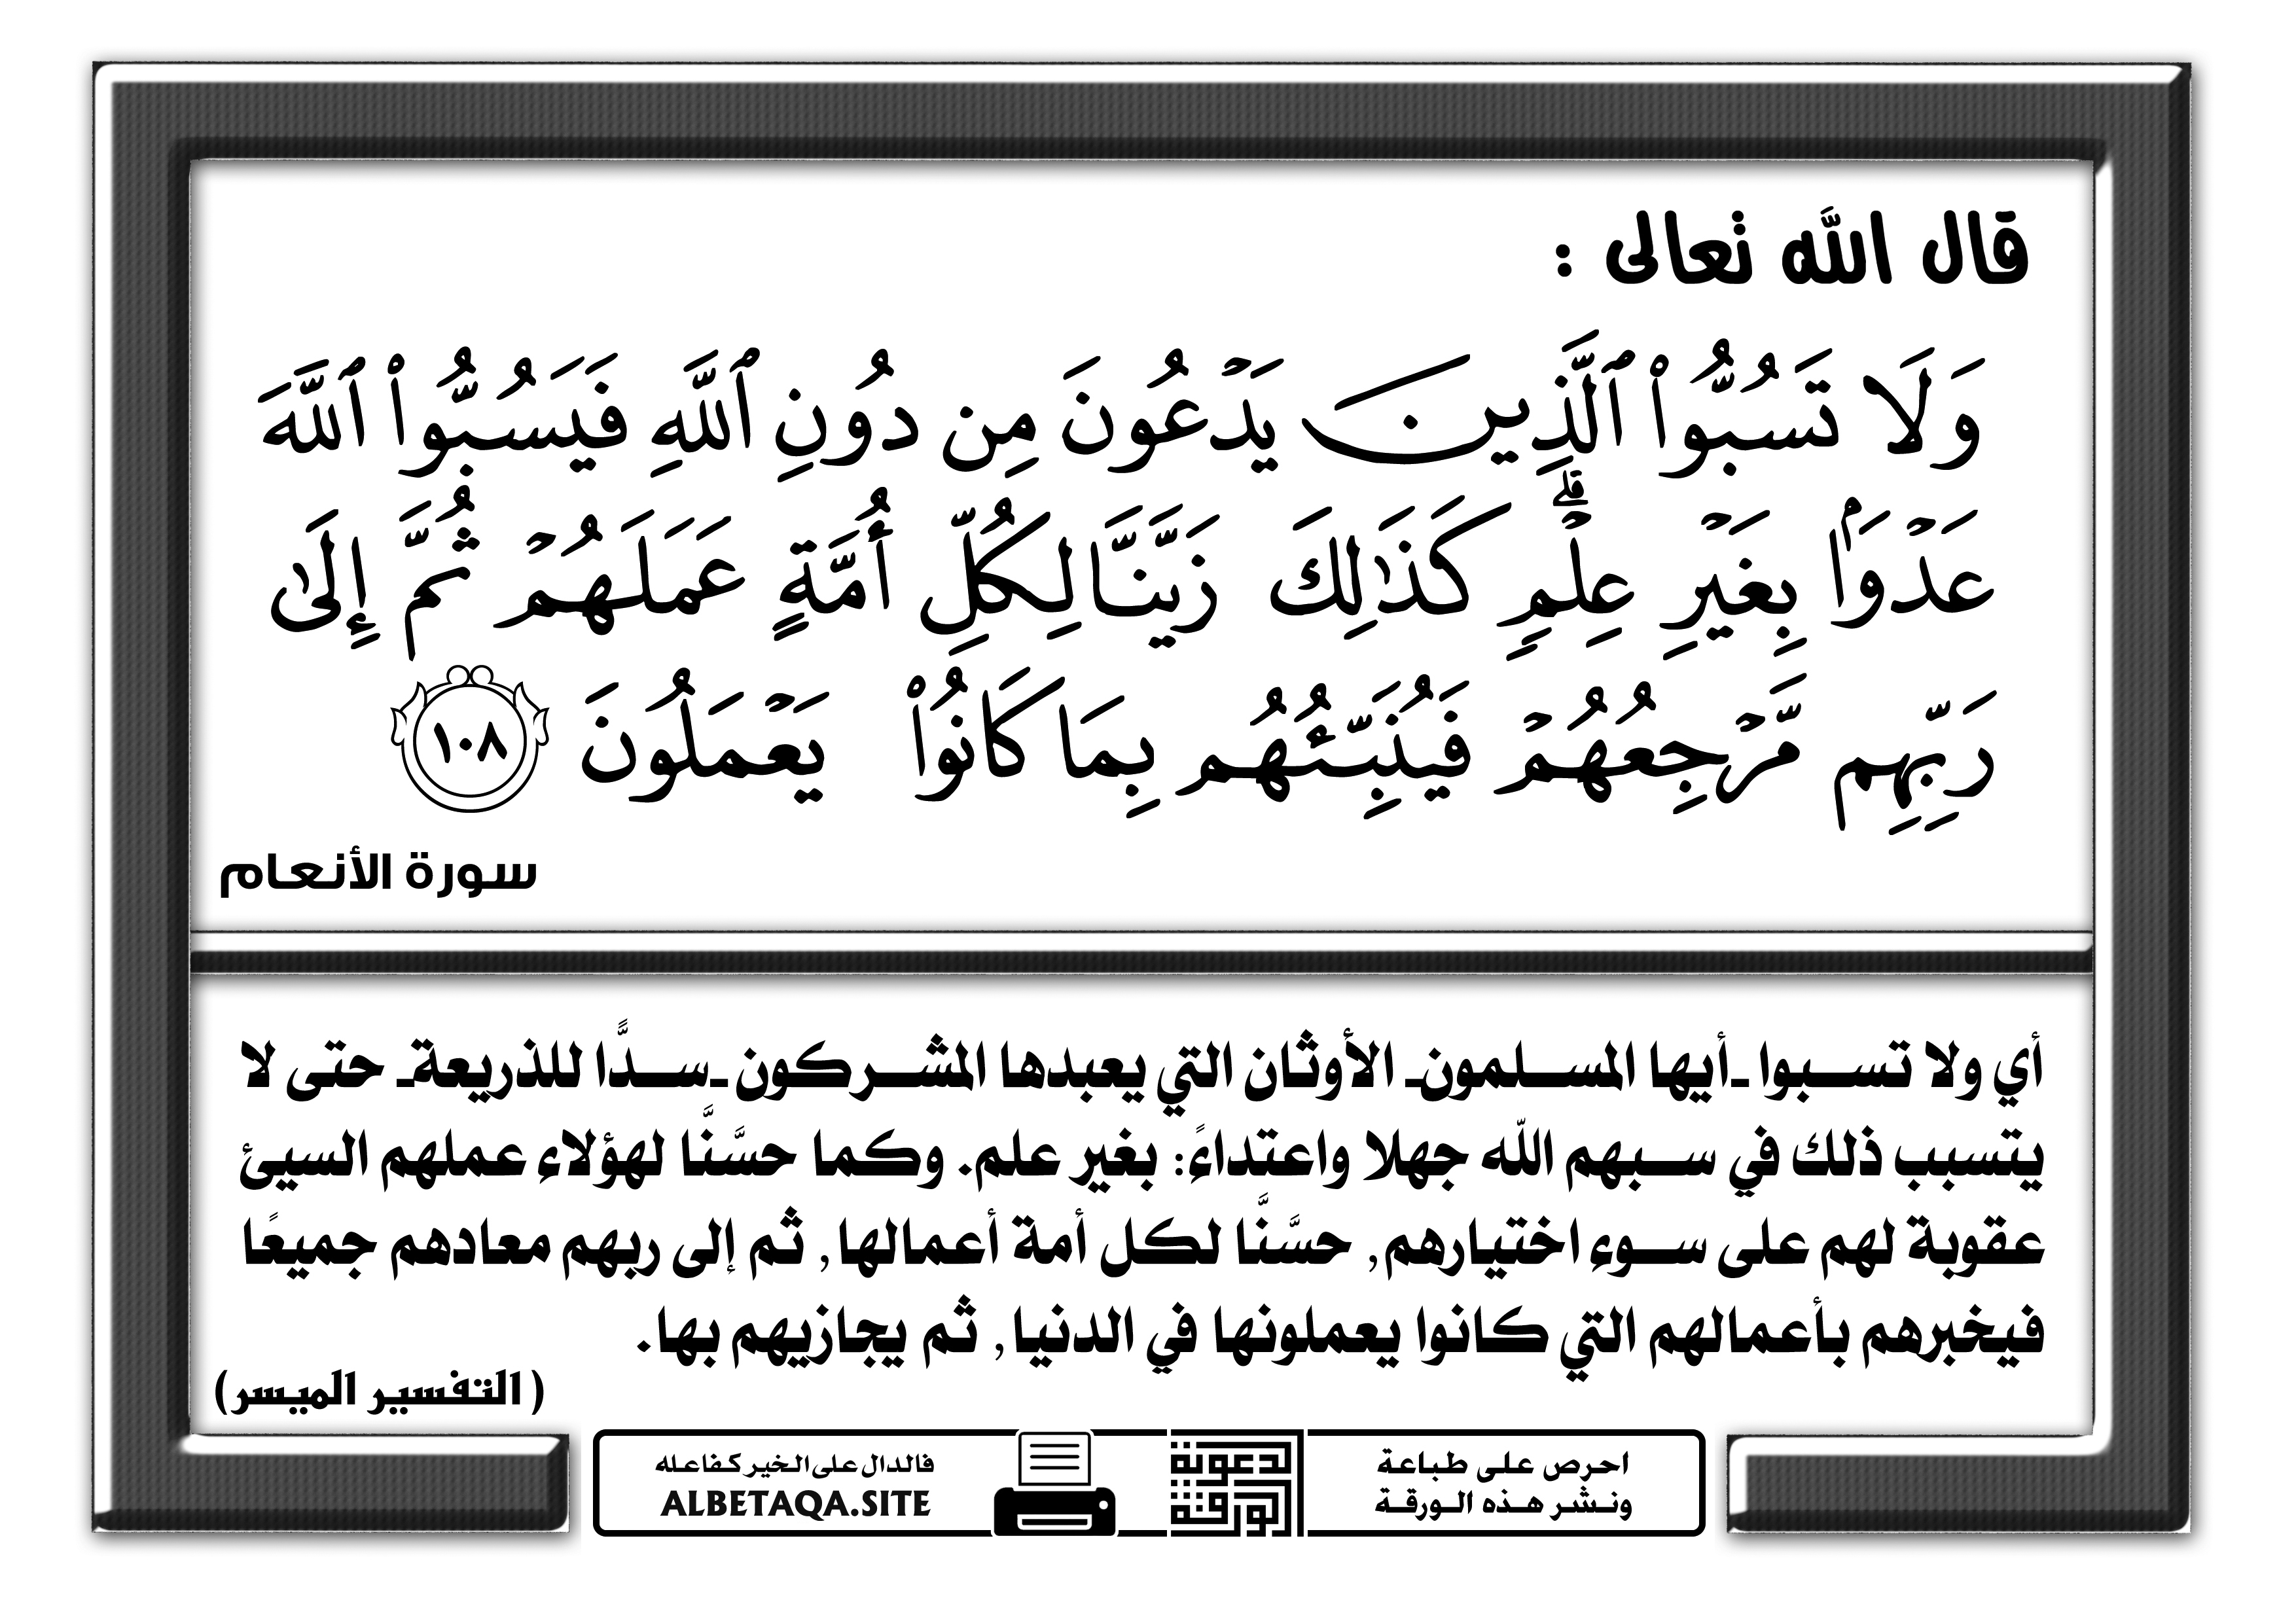 قال الله تعالى :
وَلَا تَسُبُّوا۟ ٱلَّذِينَ يَدۡعُونَ مِن دُونِ ٱللَّهِ فَيَسُبُّوا۟ ٱللَّهَ
عَدۡوَۢا بِغَيۡرِ عِلۡمٖۗ كَذَٰلِكَ زَيَّنَّا لِكُلِّ أُمَّةٍ عَمَلَهُمۡ ثُمَّ إِلَىٰ
رَبِّهِم مَّرۡجِعُهُمۡ فَيُنَبِّئُهُم بِمَا كَانُوا۟ يَعۡمَلُونَ ١٠٨
سورة الأنعام
أي ولا تسبوا -أيها المسلمون- الأوثان التي يعبدها المشركون -سدًّا للذريعة- حتى لا
يتسبب ذلك في سبهم الله جهلا واعتداءً: بغير علم. وكما حسَّنَّا لهؤلاء عملهم السيئ
عقوبة لهم على سوء اختيارهم, حسَّنَّا لكل أمة أعمالها, ثم إلى ربهم معادهم جميعًا
فيخبرهم بأعمالهم التي كانوا يعملونها في الدنيا, ثم يجازيهم بها.
( التفسير الميسر)
احرص على طباعة
ونشر هذه الورقة
الدعوية
الورقة
فالدال على الخير كفاعله
ALBETAQA.SITE